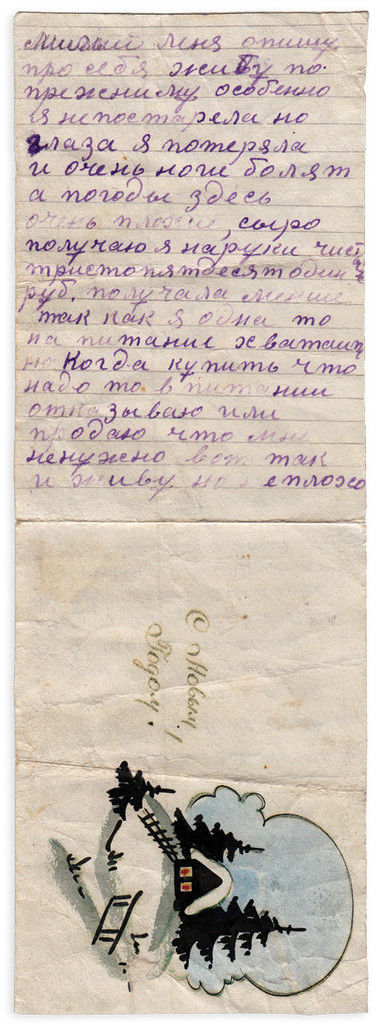 Милый Леня опишу
про себя живу по
прежниму особенно
я непостарела но
глаза я потеряла
и очень ноги болят
а погоды здесь
очень плохие, сыро
получаю я наруки чист
тристопятдесятодин
руб. получала меньше
так как я одна то
на питание хватает
но когда купить что
надо то в питании
отказываю или
продаю что мне
ненужно вот так
и живу но неплохо
С Новым
Годом!